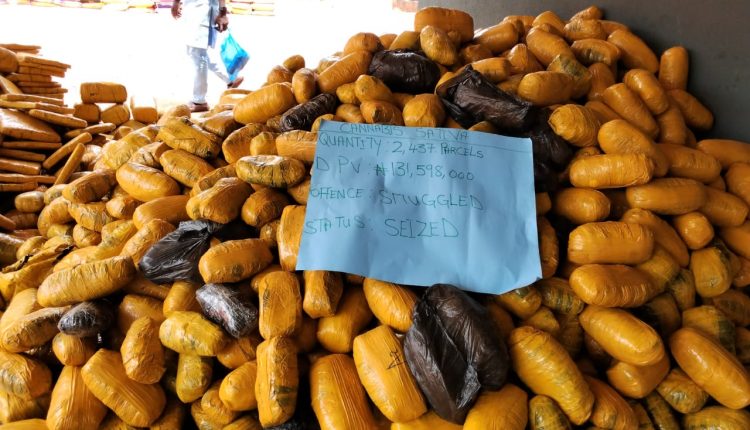 CANNABIS SATIVA
QUANTITY: 2,437 PARCELS
D PV: ₦131,598,000
OFFENCE: SMUGGLED
STATUS: SEIZED